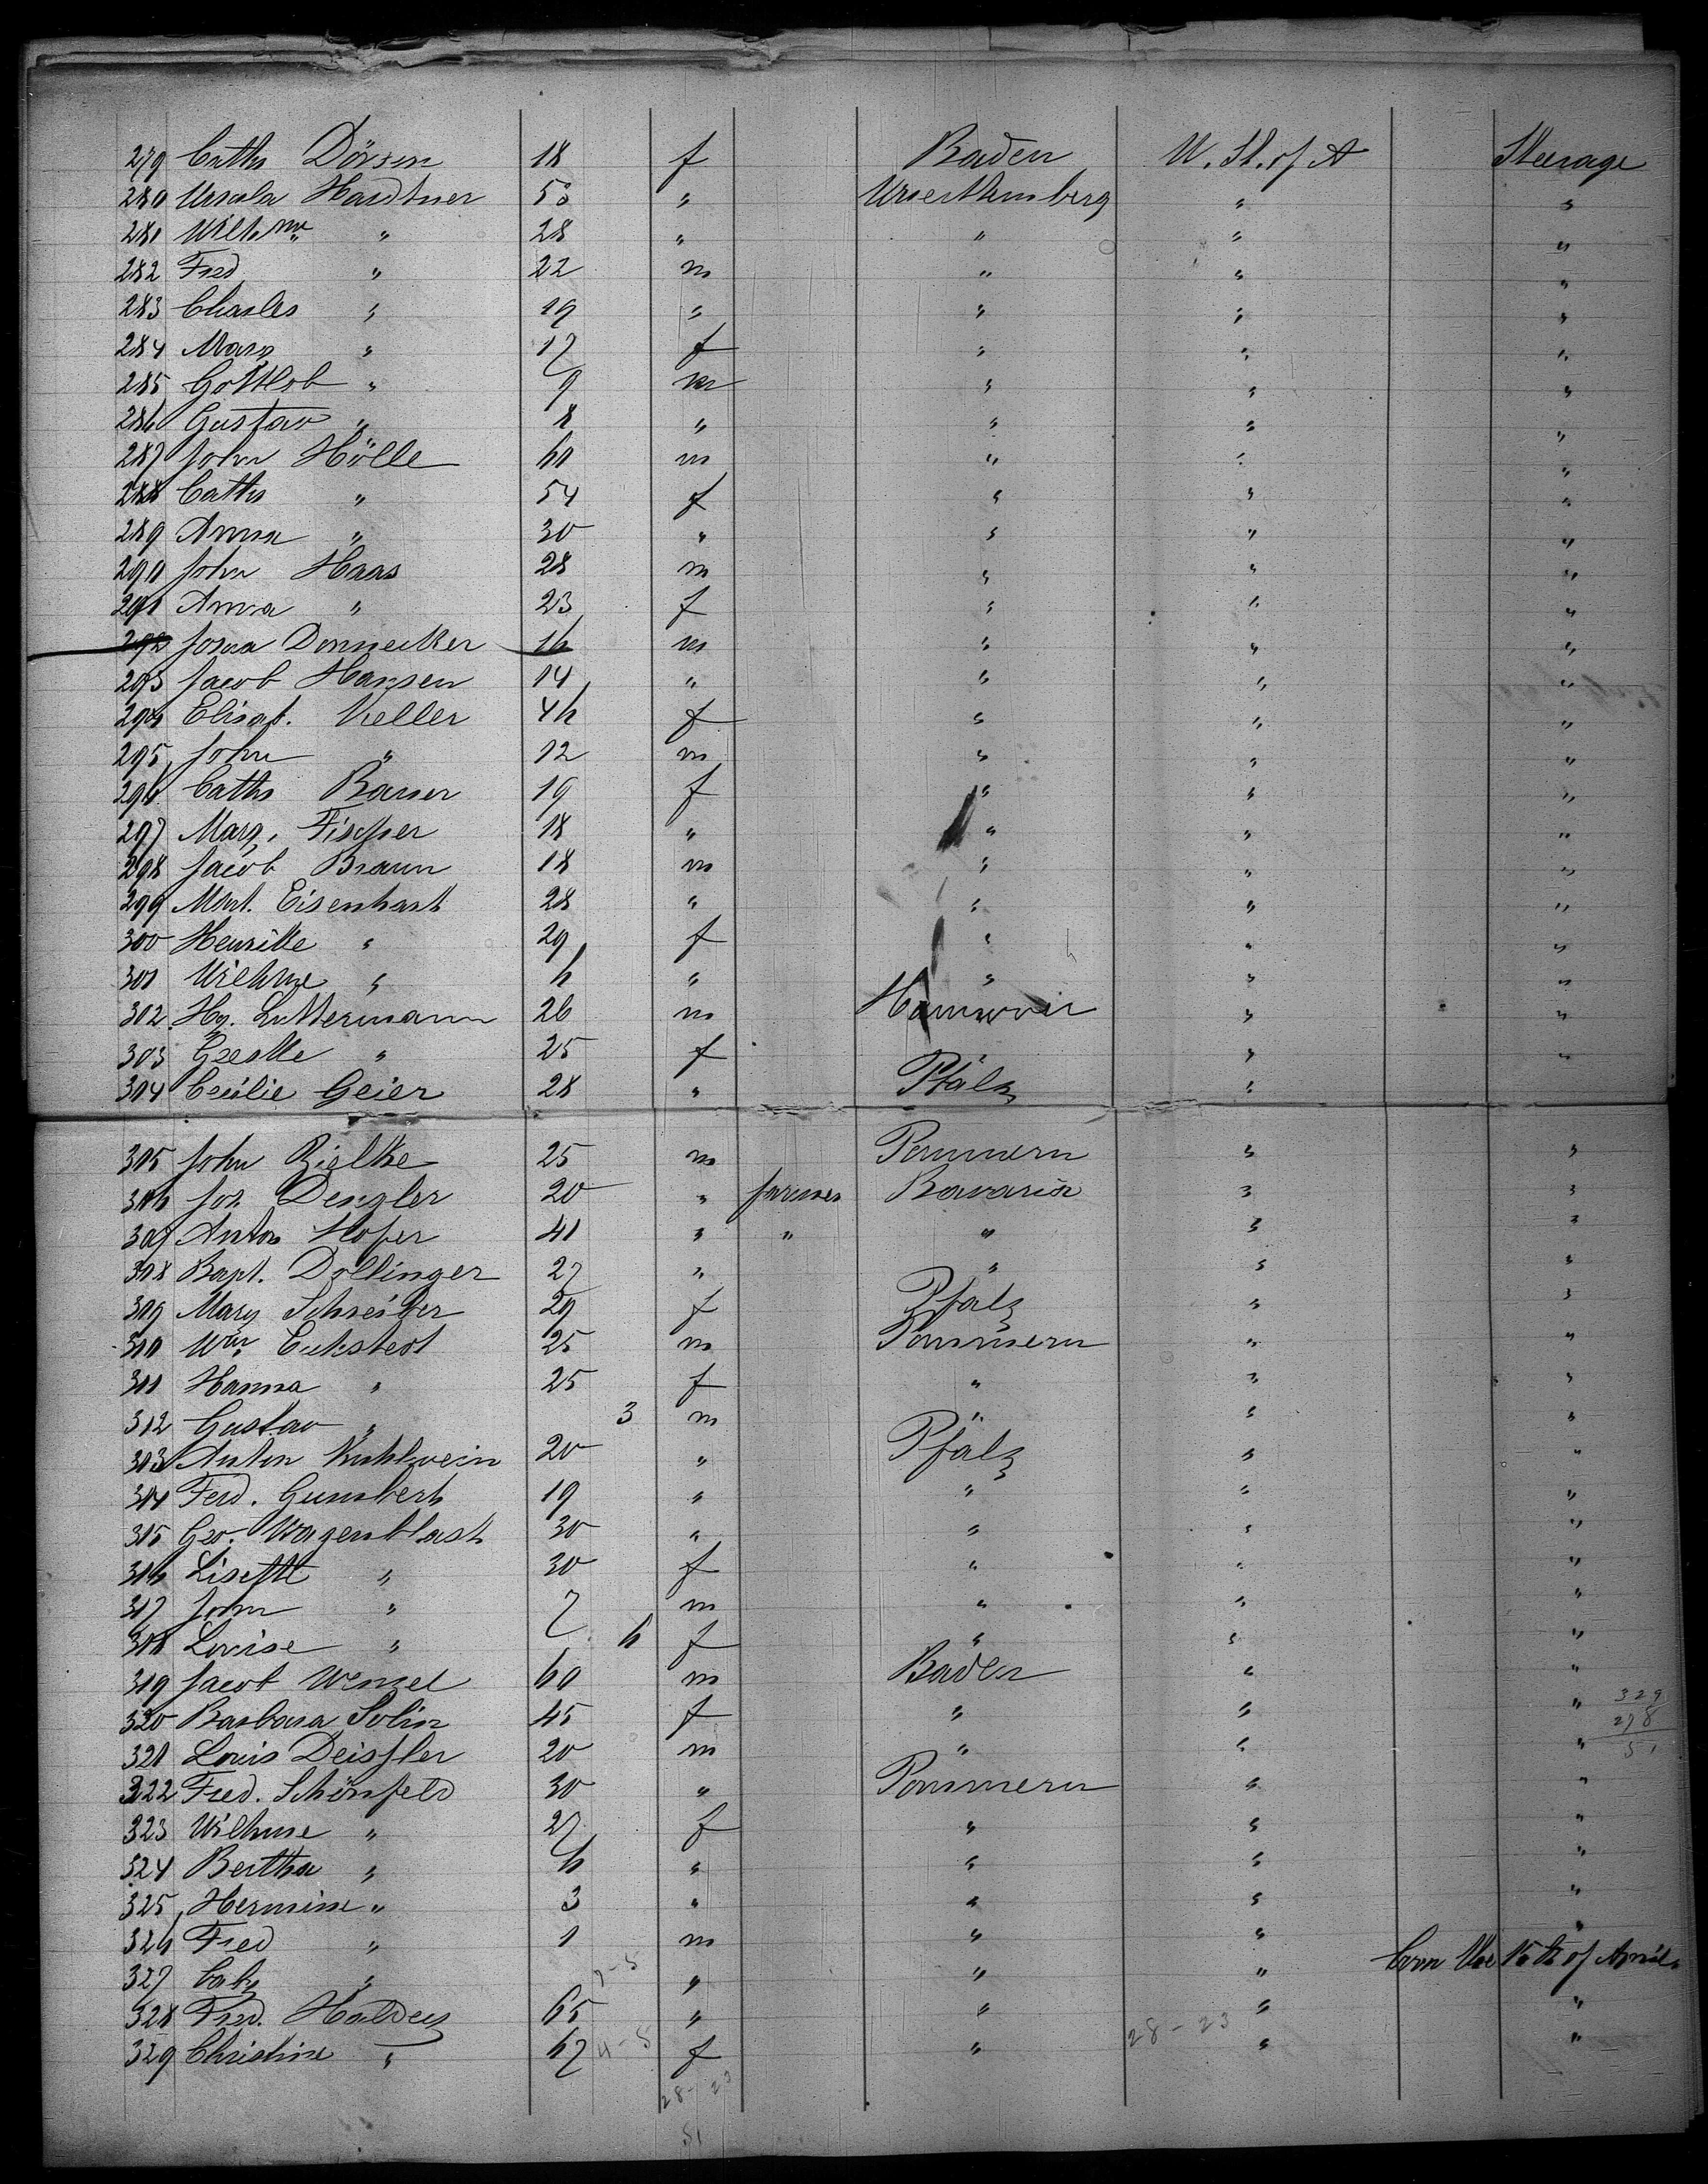 279 Cathr Dörsen 18 f Baden U. St. of A Steerage
280 Ursula Hardtner 53 " Wuerthemberg " "
281 Wilhme " 28 " " " "
282 Fred " 22 m " " "
283 Charles " 19 " " " "
284 Marg " 17 f " " "
285 Gottlob " 9 m " " "
286 Gustav " 8 " " " "
287 John Hölle 60 m " " "
288 Cathr " 54 f " " "
289 Anna " 30 " " " "
290 John Haas 28 m " " "
291 Anna " 23 f " " "
292 Donnecker 16 m " " "
293 Jacob Hansen 14 " " " "
294 Elisab. Keller 46 f " " "
295 John " 12 m " " "
296 Cathr Bauer 19 f " " "
297 Marg. Fischer 18 " " " "
298 Jacob Braun 18 m " " "
299 Mart. Eisenhart 28 " " " "
300 Henritte " 29 f " " "
301 Wilhme " 6 " " " "
302 Hy. Luttermann 26 m Hannover " "
303 " 25 f " "
304 Cecilie Geier 28 " Pfalz "
305 John Zielke 25 m Pommern " "
306 Jos. Dengler 20 " farmer Bavaria " "
307 Anton Hofer 41 " " " " "
308 Bapt. Dollinger 27 " " " "
309 Marg Schreiber 29 f Pfalz " "
310 Wm Eukstedt 25 m Pommern " "
311 Hanna " 25 f " " "
312 Gustav " 3 m " " "
313 Anton Kuhlwein 20 " Pfalz " "
314 Ferd. Gumbert 19 " " " "
315 Geo. Wagenblast 30 " " " "
316 Lisette " 30 f " " "
317 John " 7 m " " "
318 Louise " 6 f " " "
319 Jacob Wenzel 60 m Baden " "
320 Barbara Solin 45 f " " " 329
278
321 Louis Deissler 20 m " " " 51
322 Fred. Schönfeld 30 " Pommern " "
323 Wilhme " 27 f " " "
324 Bertha " 6 " " " "
325 Hermine " 3 " " " "
326 Fred " 1 m " " "
327 baby " 7-5 " " " born the 15th of April
328 Fred. Haldey 65 " " " "
329 Christine " 67 4-5 f " 28-23 " "
28-23
51